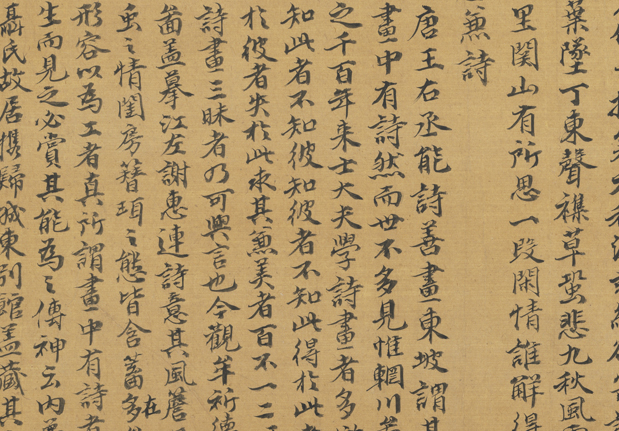 葉墜丁東聲襍草蛩悲九秋風
里関山有所思一段閑情誰解得
兼詩
唐王右丞能詩善畫東坡謂其
畫中有詩然而世不多見惟輞川
之千百年来士大夫學詩畫者多
知此者不知彼知彼者不知此得於此
於彼者失於此求其兼美者百不一二
詩畫三昧者乃可與言也今觀牟祈
啚盖摹江左謝惠連詩意其風簷
虫之情閨房簪珥之態皆含蓄多在
形容以為工者真所謂畫中有詩者
生而見之必賞其能為之傳神云内
聶氏故居攜歸城東別館盖藏其